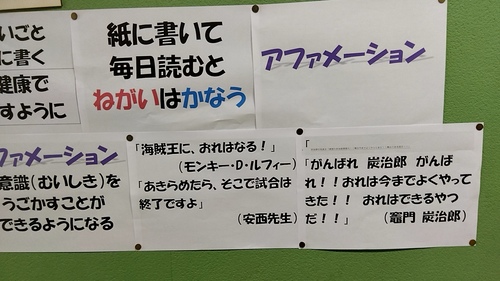 いごと
に書く
健康で
すように
紙に書いて
毎日読むと
ねがいはかなう
アファメーション
ファメーション
意識(むいしき)を
うごかすことが
できるようになる
「海賊王に、おれはなる！」
(モンキー・D・ルフィー)
「あきらめたら、そこで試合は
終了ですよ」
(安西先生)
「
「がんばれ 炭治郎 がんば
れ！！おれは今までよくやって
きた！！ おれはできるやつ
だ！！」 (竈門 炭治郎)